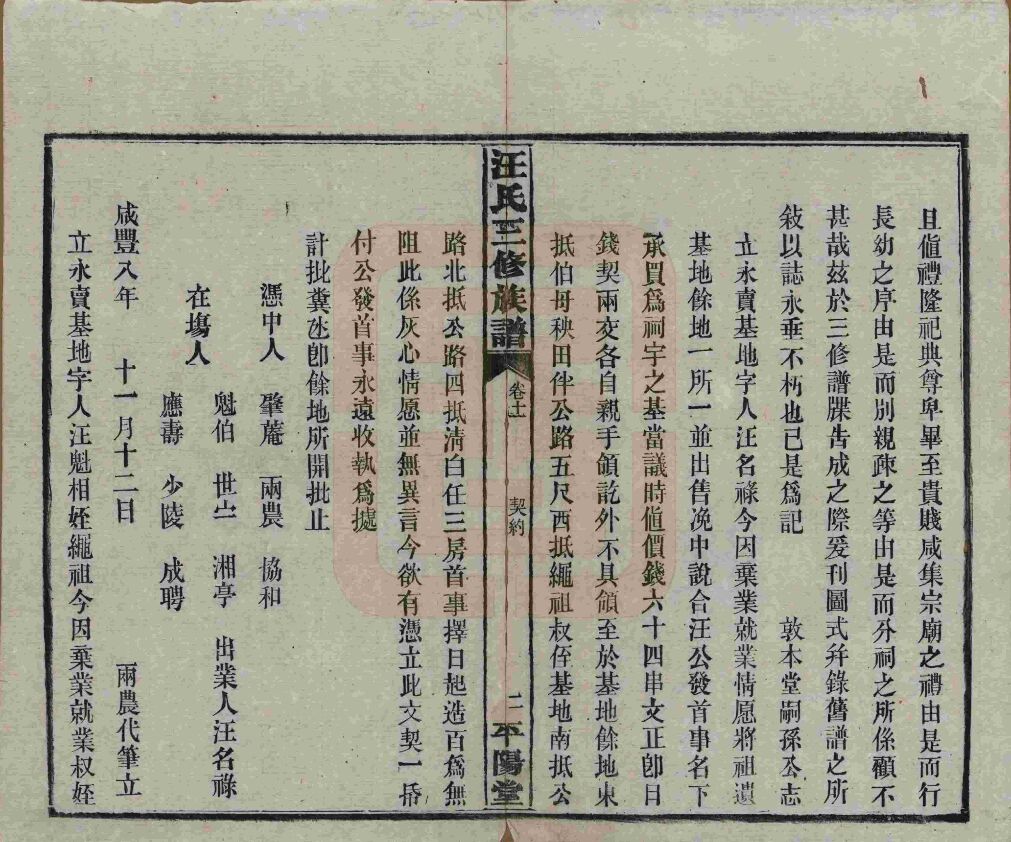 且値禮隆祀典尊卑畢至貴賤咸集宗廟之禮由是而行
長幼之序由是而別親疎之等由是而分祠之所係顧不
甚哉玆於三修譜牒告成之際爰刊圖式并錄舊譜之所
敍以誌永垂不朽也已是爲記　敦本堂嗣孫公志
立永賣基地字人汪名祿今因棄業就業情愿將祖遺
基地餘地一所一並出售浼中說合汪公發首事名下
承買爲祠宇之基當議時値價錢六十四串文正卽日
錢契兩交各自親手領訖外不具領至於基地餘地東
抵伯母秧田伴公路五尺西抵繩祖叔侄基地南抵公
汪氏三修族譜　卷十一　契約　二　平陽堂
路北抵公路四抵淸白任三房首事擇日起造百爲無
阻此係灰心情愿並無異言今欲有憑立此文契一帋
付公發首事永遠收執爲據
計批糞氹卽餘地所開批止
憑中人　肇菴　兩農　協和
魁伯　世芒　湘亭　出業人汪名祿
在塲人
應壽　少陵　成聘
咸豐八年　十一月十二日　雨農代筆立
立永賣基地字人汪魁相姪繩祖今因棄業就業叔姪